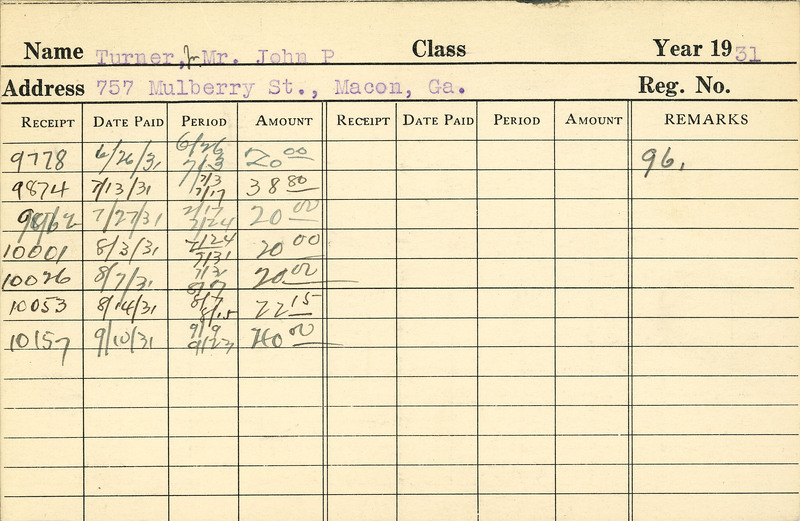 Name Turner, Jr. Mr. John P Class Year 1931
Address 757 Mulberry St., Macon, Ga. Reg. No.
RECEIPT DATE PAID PERIOD AMOUNT RECEIPT DATE PAID PERIOD AMOUNT REMARKS
9778 6/26/31 6/26 7/3 20 00 96.
9874 7/13/31 7/3 7/17 38 80
7/27/31 7/17 7/24 20 00
10001 8/3/31 7/24 7/31 20 00
10026 8/7/31 20 00
10053 8/14/31 8/7 8/15 22 15
10157 9/10/31 9/9 9/23 40 00